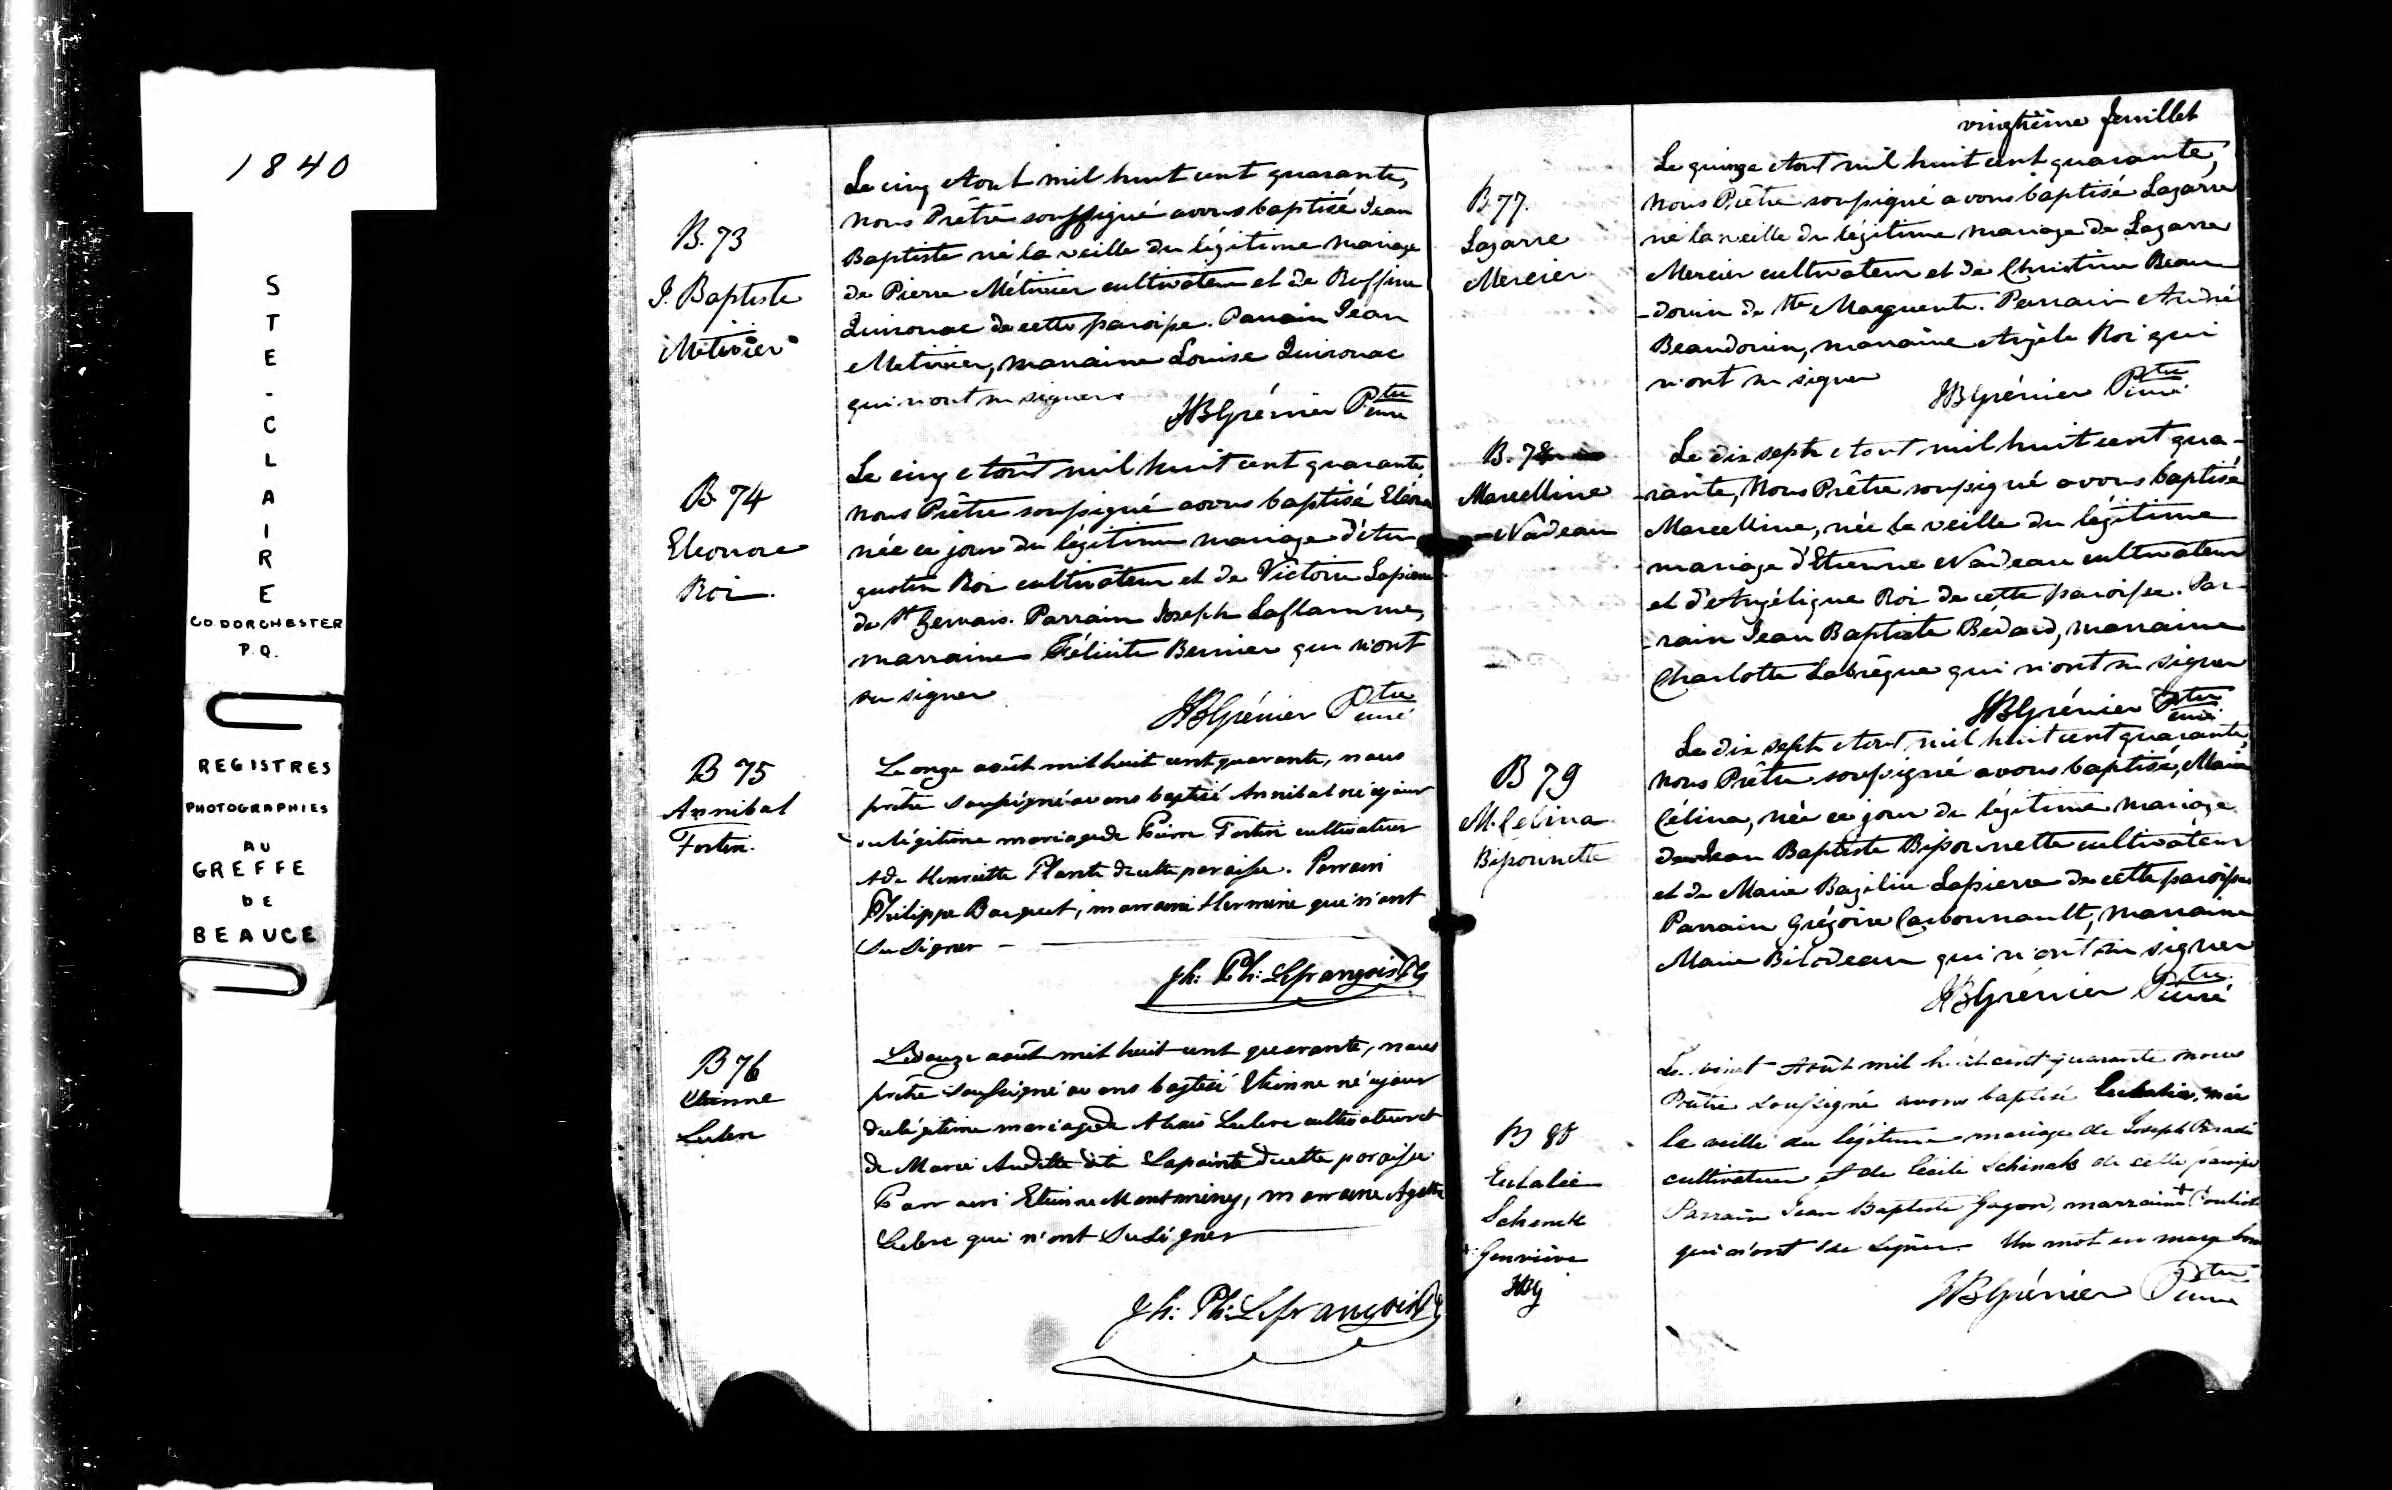 1840
STE-CLAIRE
CO. DORCHESTER
P.Q.
REGISTRES
PHOTOGRAPHIES
AU
GREFFE
DE
BEAUCE
B. 73
J. Baptiste
Métivier
Le cinq Aout mil huit cent quarante,
nous Prêtre soussigné avons baptisé Jean
Baptiste né la veille du légitime mariage
de Pierre Métivier cultivateur et de Ruffine
Quirouac de cette paroisse. Parrain Jean
Metivier, marraine Louise Quirouac
qui n'ont su signer
JBGrénier Ptre
curé
B 74
Eleonore
Roi
Le cinq Août mil huit cent quarante
nous Prêtre soussigné avons baptisé
née ce jour du légitime mariage d'Au
gustin Roi cultivateur et de Victoire Lapierre
de St Gervais. Parrain Joseph Laflamme,
marraine Félicité Bernier qui n'ont
su signer
JBGrénier Ptre
curé
B 75
Annibal
Fortin.
Le onze août mil huit cent quarante, nous
prêtre soussigné avons baptisé Annibal né ce jour
du légitime mariage de Pierre Fortin cultivateur
et de Henriette Plante de cette paroisse. Parrain
Philippe Baquet, marraine Hermine qui n'ont
su signer
Jh: Ph: Lefrançois
B 76
Etienne
Leclerc
Le douze août mil huit cent quarante, nous
prêtre soussigné avons baptisé Etienne né ce jour
du légitime mariage de Alexis Leclerc cultivateur et
de Marie Audette dite Lapointe de cette paroisse.
Parrain Etienne Montminy, marraine Agathe
Leclerc qui n'ont su signer
Jh: Ph: Lefrançois
vingtième feuillet
B 77.
Lazarre
Mercier
Le quinze Aout mil huit cent quarante,
nous Prêtre soussigné avons baptisé Lazarre
né la veille du légitime mariage de Lazarre
Mercier cultivateur et de Christine Beau
-douin de Ste Marguerite. Parrain André
Beaudouin, marraine Angèle Roi qui
n'ont su signer
JBGrénier Ptre
curé
B. 78
Marcelline
Nadeau
Le dix sept Aout mil huit cent qua-
-rante, Nous Prêtre soussigné avons baptisé
Marcelline, née la veille du légitime
mariage d'Etienne Nadeau cultivateur
et d'Angélique Roi de cette paroisse. Par-
-rain Jean Baptiste Bedard, marraine
Charlotte Labrèque qui n'ont su signer
JBGrénier Ptre
curé
B 79
M. Celina
Bissonnette
Le dix sept Aout mil huit cent quarante,
nous Prêtre soussigné avons baptisé, Marie
Célina, née ce jour du légitime mariage
de Jean Baptiste Bissonnette cultivateur
et de Marie Bazilice Lapierre de cette paroisse
Parrain Grégoire Carbonnault, marraine
Marie Bilodeau qui n'ont su signer
JBGrénier Ptre
curé
B 80
Eulalie
Schenck
+ Geneviève
JBG
Le vingt Août mil huit cent quarante nous
Prêtre soussigné avons baptisé Eulalie, née
la veille du légitime mariage de Joseph
cultivateur et de Cécile Schenck de cette paroisse
Parrain Jean Baptiste Guyon, marraine +
qui n'ont su signer. Un mot en marge bon
JBGrénier Ptre
curé